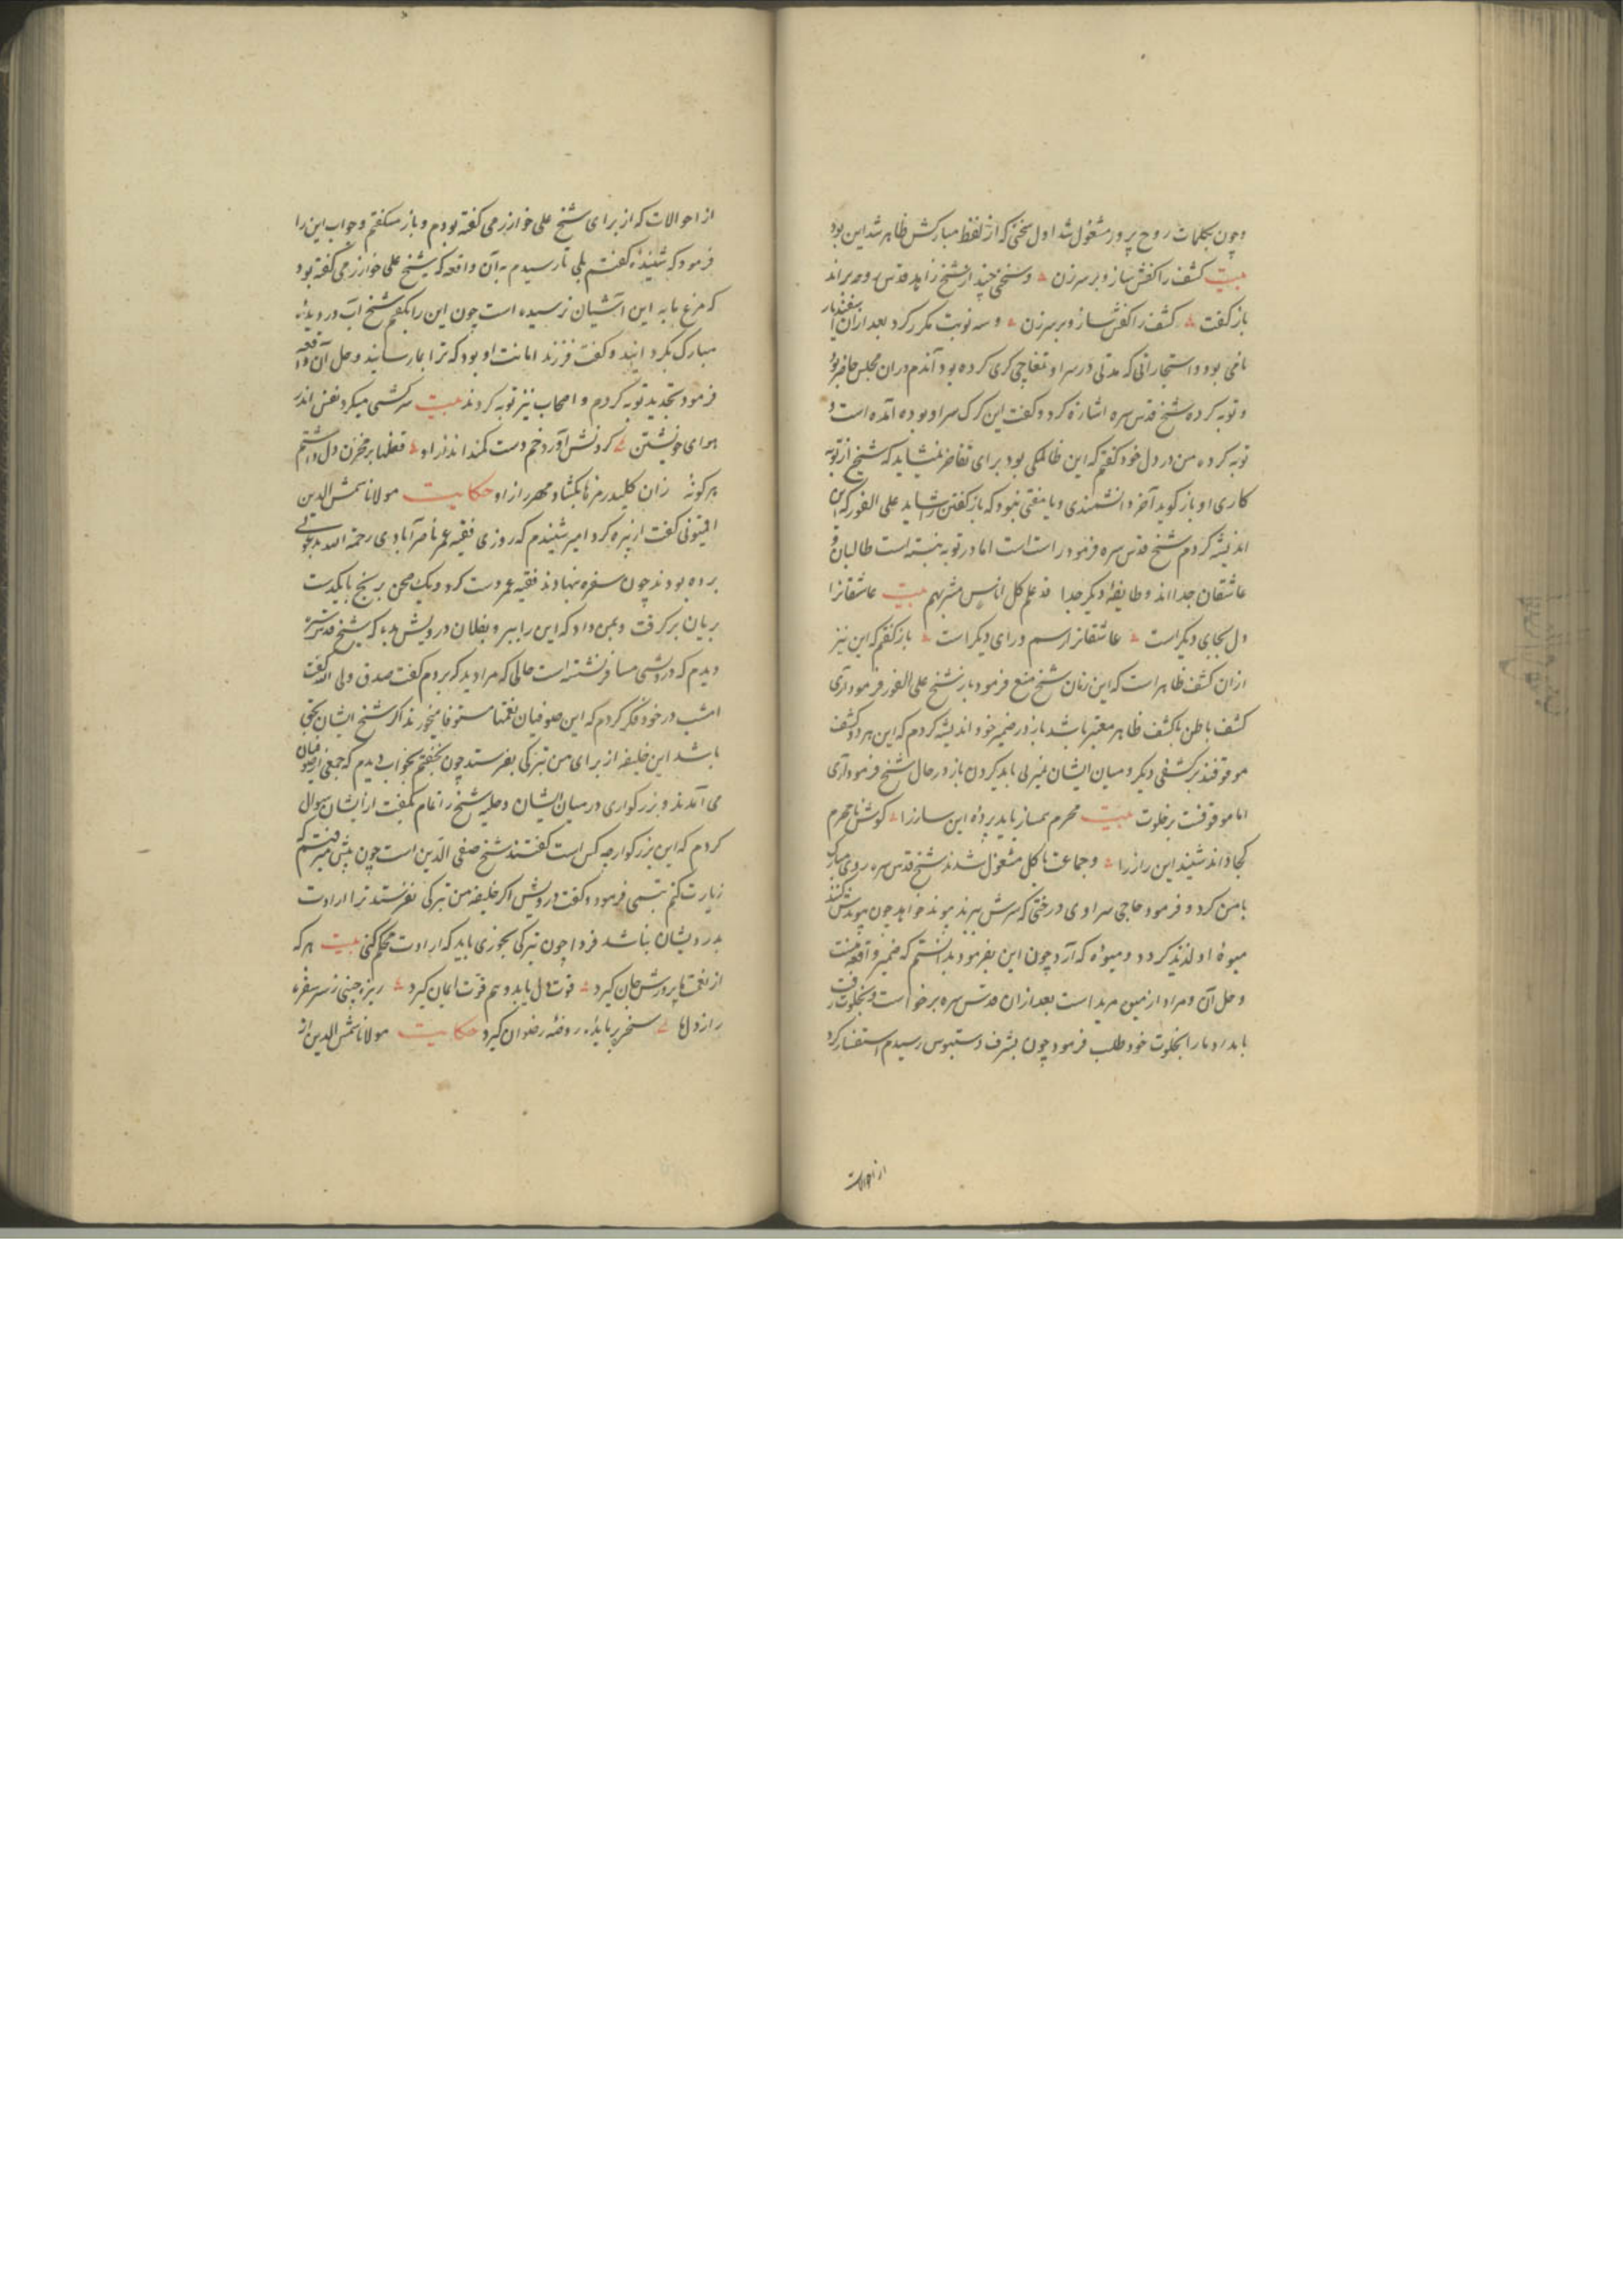 وچون بکلمات روح پرور مشغول شد اول سخنی که از لفظ مبارکش ظاهر شد این بود
بیت کشف را کفش ساز و بر سر زن و سخنی چند از شیخ زاهد قدس روحه براند
باز گفت کشف را کفش ساز و بر سر زن و سه نوبت مکرر کرد بعد از آن
نامی بود و استجارانی که مدتی در سراو تغاچی کری کرده بود آندم در آن مجلس حاضر بود
و توبه کرده شیخ قدس سره اشاره کرد و گفت این کرک سراو بوده آمده است و
توبه کرده من در دل خود گفتم که این ظالمکی بود برای تفاخر نمیشاید که شیخ از توبه
کاری او باز گوید آخر دانشمندی و یا مفتی نبود که باز گفتن را شاید علی الفور که این
اندیشه کردم شیخ قدس سره فرمود راست است اما در توبه نبسته است طالبان و
عاشقان جدا اند و طایفهٔ دیگر جدا قد علم کل اناس مشربهم بیت عاشقانرا
دل بجای دیگر است عاشقانرا رسم و رای دیگر است باز گفتم که این نیز
از آن کشف ظاهر است که این زمان شیخ منع فرمود باز شیخ علی الفور فرمود آری
کشف باطن با کشف ظاهر معتبر باشد باز در ضمیر خود اندیشه کردم که این هر دو کشف
موقوفند بر کشفی دیگر و میان ایشان تمیزی باید کردن باز در حال شیخ فرمود آری
اما موقوفست بر خلوت بیت محرم همساز باید پردهٔ این ساز را گوش نامحرم
کجا داند شنید این راز را و جماعت باکل مشغول شدند شیخ قدس سره روی مبارک
بامن کرد و فرمود حاجی سراوی درختی که سرش ببرند پیوند خواهد چون پیوندش کنند
میوهٔ او لذیذ گردد و میوهٔ که آرد چون این بفرمود بدانستم که ضمیر واقعهٔ منست
و حل آن و مراد از من مرید است بعد از آن قدس سره برخواست و بخلوت رفت
بامداد ما را بخلوت خود طلب فرمود چون بشرف دستبوس رسیدم استفسار کرد
از احوالات
از احوالات که از برای شیخ علی خوارزمی گفته بودم و باز میگفتم و جواب این را
فرمود که شنیدهٔ گفتم بلی تا رسیدم به آن واقعه که شیخ علی خوارزمی گفته بود
که مرغ ما به این آشیان نرسیده است چون این را بگفتم شیخ آب در دیدهٔ
مبارک بگردانید و گفت فرزند امانت او بود که ترا بما رسانید و حل آن واقعه
فرمود تجدید توبه کردم و اصحاب نیز توبه کردند بیت سرکشی میکرد نفس اندر
هوای خویشتن گردنش آورد خم دست کمند انداز او قفلها بر مخزن دل داشتم
هر گونهٔ زان کلید رمزها بکشاد مهر راز او حکایت مولانا شمس الدین
اقمیونی گفت از پیره گرد امیر شنیدم که روزی فقیه عمر ناصرآبادی رحمة الله بدعوتی
برده بودند چون سفره بنهادند فقیه عمر دست کرد و یک صحن برنج با یکدست
بریان برگرفت و بمن داد که این را ببر و بفلان درویش بده که شیخ قدس سره
دیدم که درویشی مسافر نشسته است حالی که مرا دید که بردم گفت صدق ولی الله گفت
امشب در خود فکر کردم که این صوفیان نعمتها مستوفا میخورند اگر شیخ ایشان بحق
باشد این خلیفه از برای من تبرکی بفرستد چون بخفتم بخواب دیدم که جمعی از صوفیان
می آمدند و بزرگواری در میان ایشان و حلیهٔ شیخ را تمام بگفت از ایشان سوال
کردم که این بزرگوار چه کس است گفتند شیخ صفی الدین است چون پیش میرفتم که
زیارت کنم تبسمی فرمود و گفت درویش اگر خلیفهٔ من تبرکی نفرستد ترا ارادت
بدرویشان نباشد فردا چون تبرکی بخوری باید که ارادت محکم کنی بیت هر که
از نعمت ما پرورش جان گیرد قوت دل یابد و هم قوت ایمان گیرد ریزه چینی ز سر سفرهٔ
راز دلها سخر برپایهٔ روضهٔ رضوان گیرد حکایت مولانا شمس الدین از